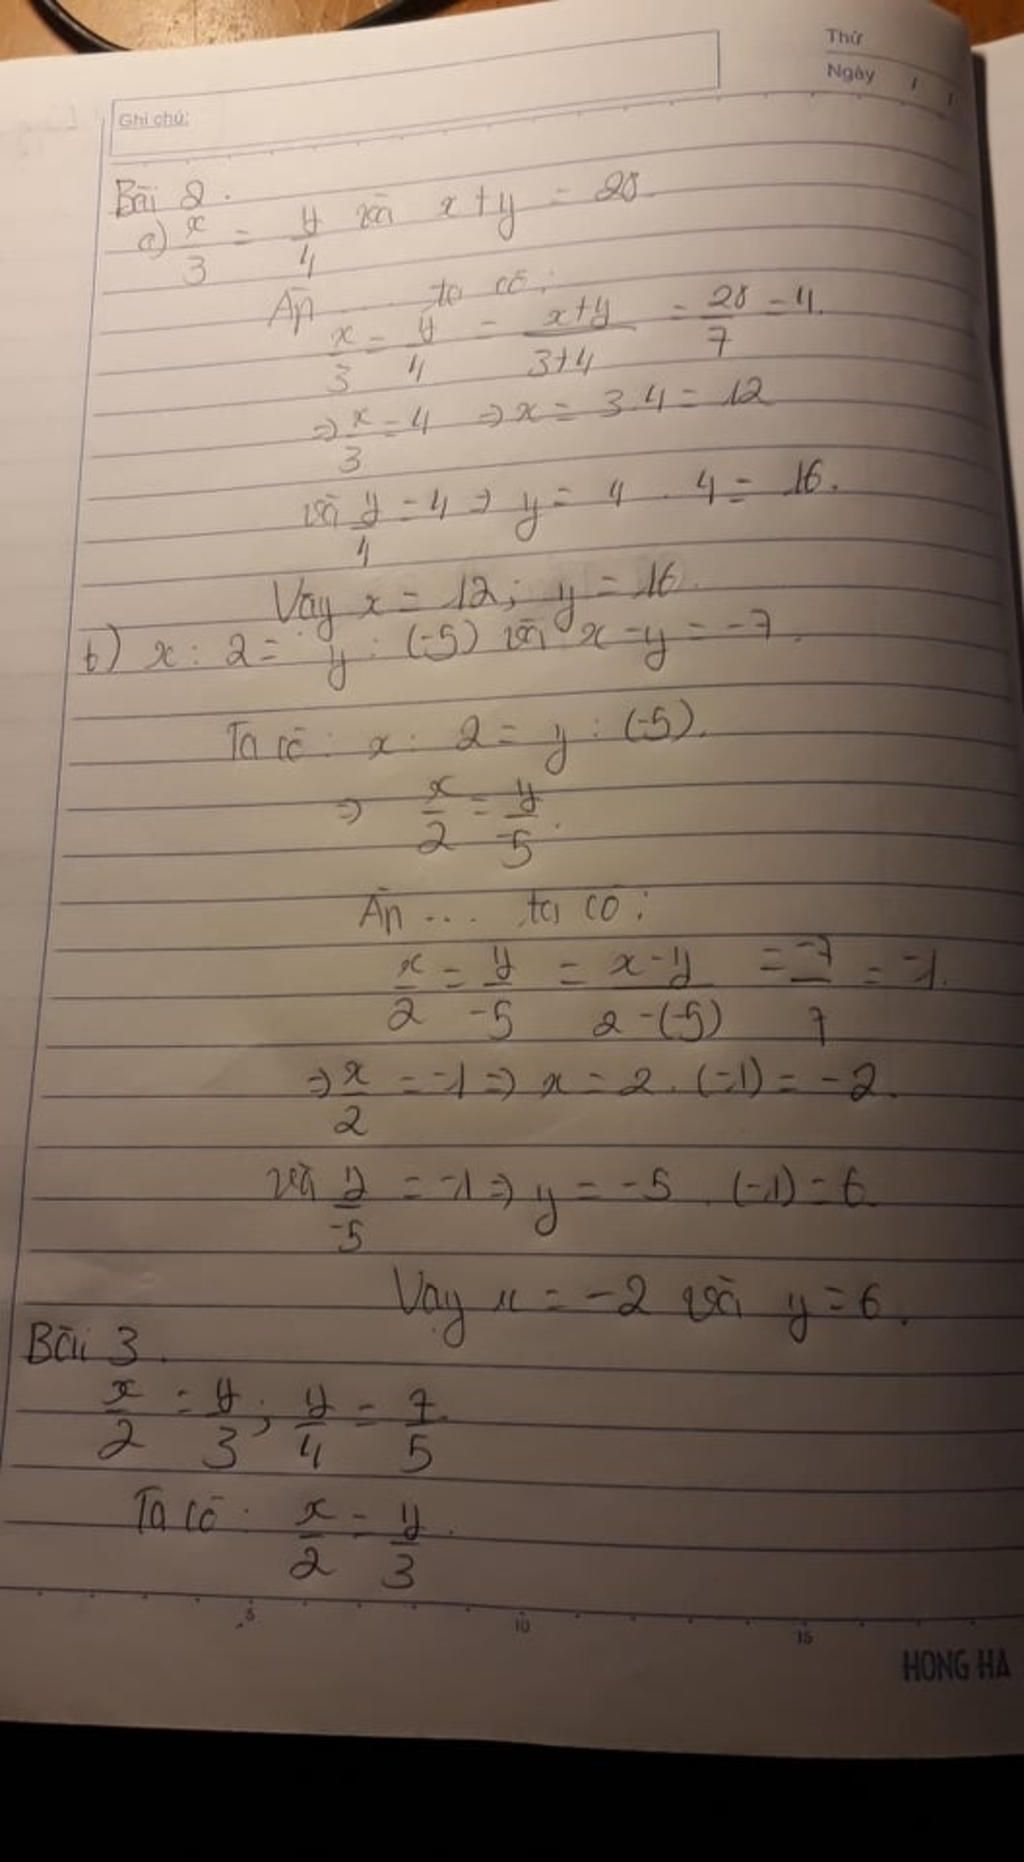 Thứ
Ngày / /
Ghi chú:
Bài 2.
a) x/3 = y/4 và x+y = 28
Áp ... ta có:
x/3 = y/4 = x+y/3+4 = 28/7 = 4.
=> x/3 = 4 => x = 3.4 = 12
và y/4 = 4 => y = 4 . 4 = 16.
Vậy x = 12; y = 16.
b) x : 2 = y : (-5) và x-y = -7.
Ta có: x : 2 = y : (-5).
=> x/2 = y/-5.
Áp ... ta có:
x/2 = y/-5 = x-y/2-(-5) = -7/7 = -1.
=> x/2 = -1 => x = 2 . (-1) = -2.
và y/-5 = -1 => y = -5 . (-1) = 6
Vậy x = -2 và y = 6.
Bài 3.
x/2 = y/3; y/4 = 7/5
Ta có: x/2 = y/3.
5 10 15
HONG HA